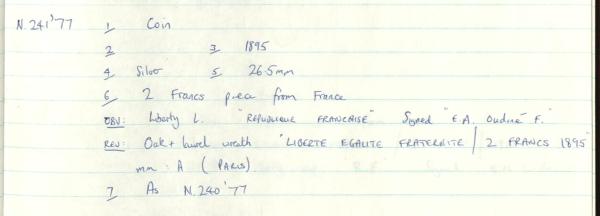 N.241'77 1 Coin
2 3 1895
4 Silver 5 26.5mm
6 2 Francs piece from France
OBV: Liberty L. "REPUBLIQUE FRANCAISE" Signed "E.A. Oudiné F."
REV: Oak + laurel wreath "LIBERTE EGALITE FRATERNITE / 2 FRANCS 1895"
mm: A (PARIS)
7 As N.240'77